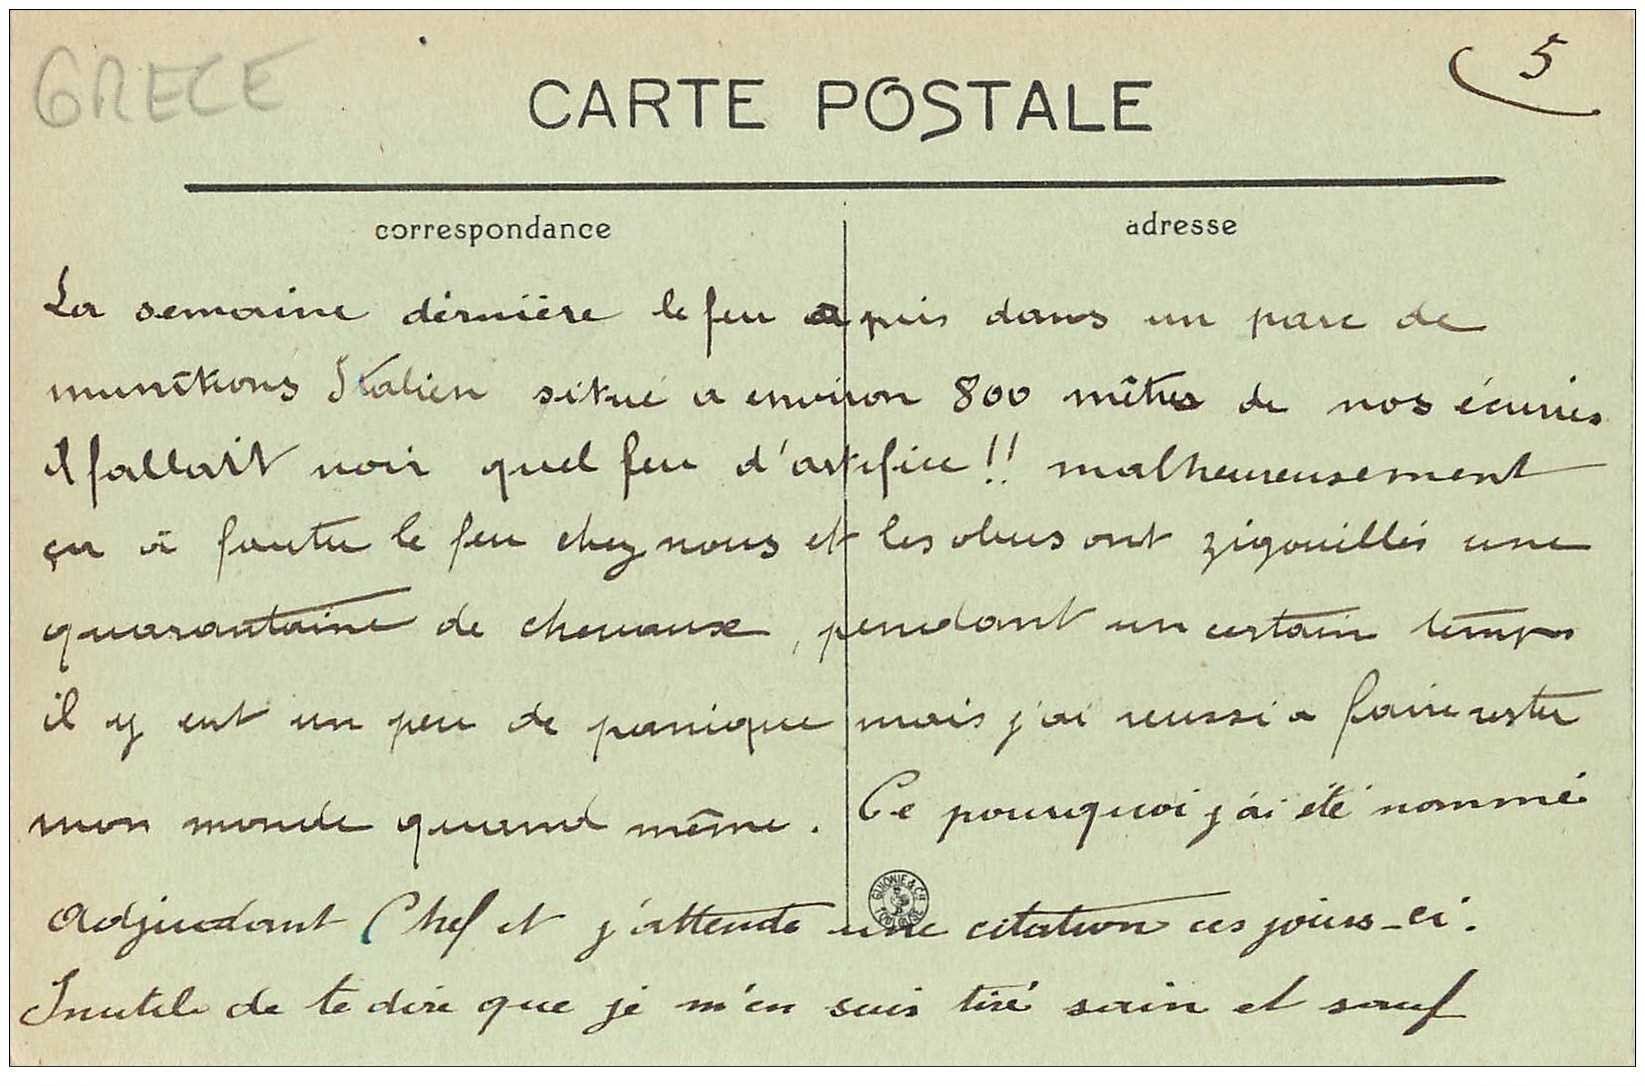 GRECE
5
CARTE POSTALE
correspondance
adresse
La semaine dernière le feu a pris dans un parc de
munitions Italien situé a environ 800 mêtres de nos écuries
il fallait voir quel feu d'artifice !! malheureusement
ça à foutu le feu chez nous et les obus ont zigouillés une
quarantaine de chevaux, pendant un certain temps
il y eut un peu de panique mais j'ai reussi a faire rester
mon monde quand même. Ce pourquoi j'ai été nommé
Adjudant Chef et j'attends une citation ces jours-ci.
Inutile de te dire que je m'en suis tiré sain et sauf
GUIONIE & CH